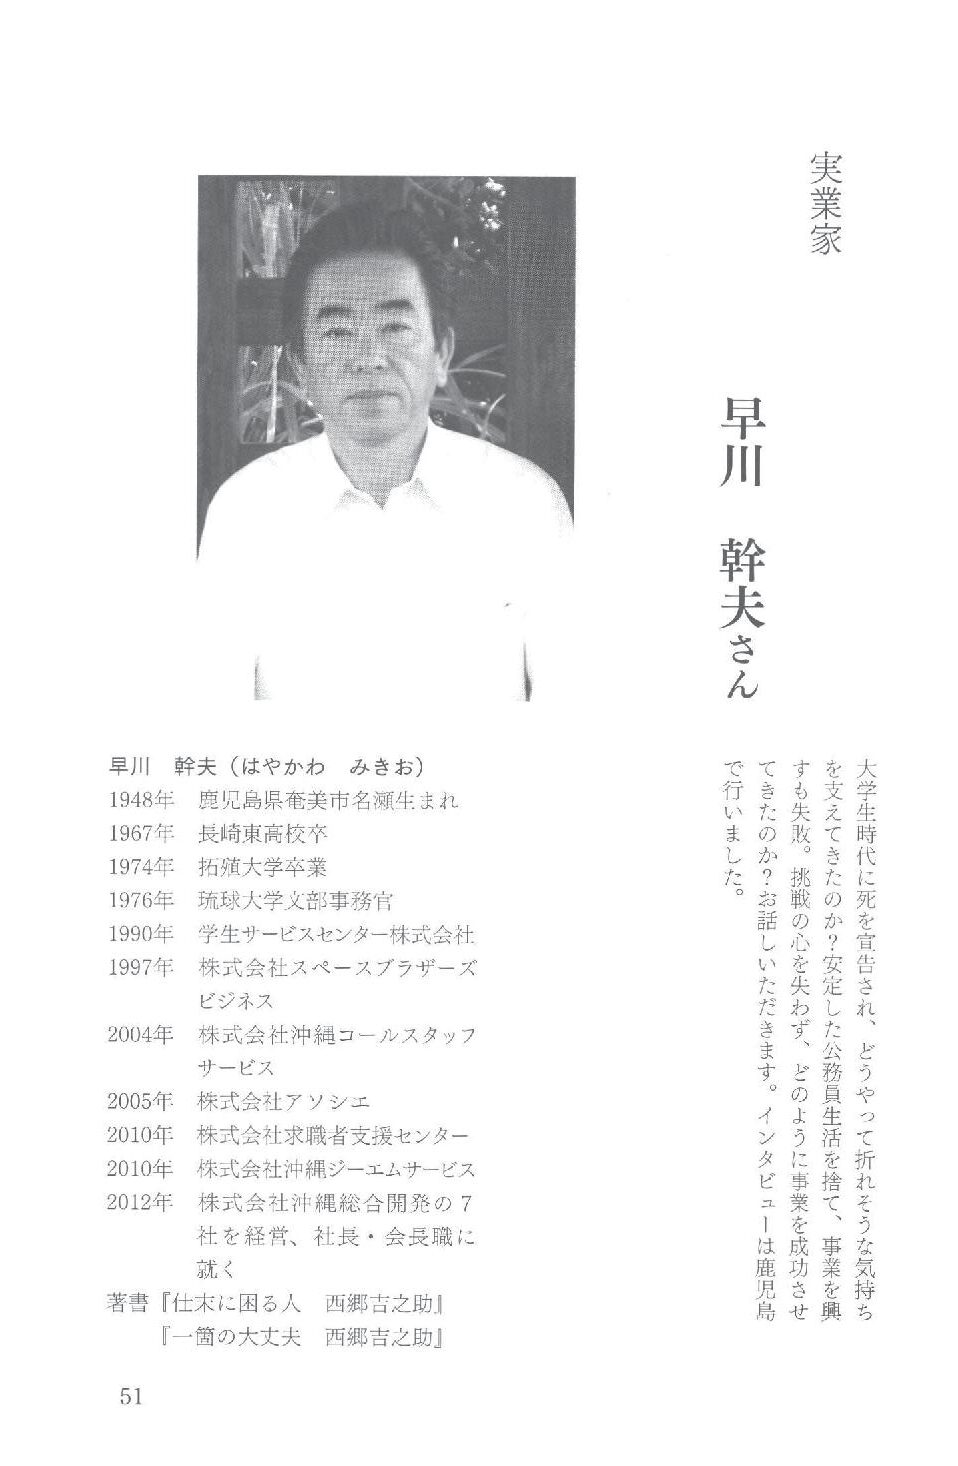 実業家
早川　幹夫さん
大学生時代に死を宣告され、どうやって折れそうな気持ち
を支えてきたのか？安定した公務員生活を捨て、事業を興
すも失敗。挑戦の心を失わず、どのように事業を成功させ
てきたのか？お話しいただきます。インタビューは鹿児島
で行いました。
早川　幹夫（はやかわ　みきお）
1948年　鹿児島県奄美市名瀬生まれ
1967年　長崎東高校卒
1974年　拓殖大学卒業
1976年　琉球大学文部事務官
1990年　学生サービスセンター株式会社
1997年　株式会社スペースブラザーズ
ビジネス
2004年　株式会社沖縄コールスタッフ
サービス
2005年　株式会社アソシエ
2010年　株式会社求職者支援センター
2010年　株式会社沖縄ジーエムサービス
2012年　株式会社沖縄総合開発の７
社を経営、社長・会長職に
就く
著書『仕末に困る人　西郷吉之助』
『一箇の大丈夫　西郷吉之助』
51